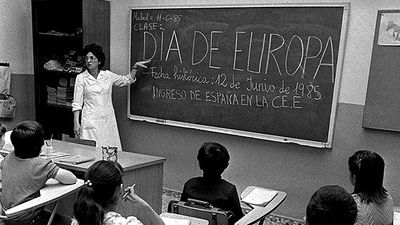 Madrid a 11-6-85
CLASE:
DIA DE EUROPA
- Fecha histórica: 12 de Junio de 1985
INGRESO DE ESPAÑA EN LA C.E.E